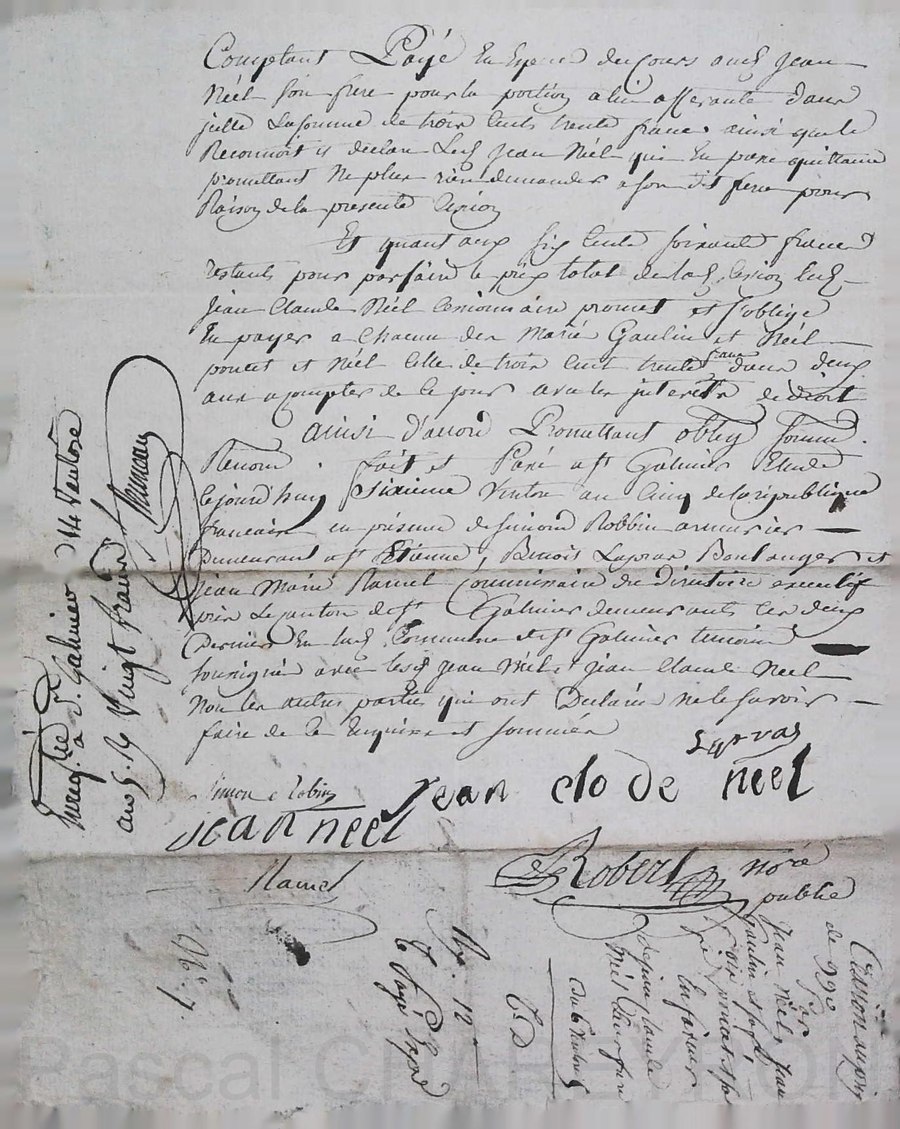 Comptant Payé en Espece du Cours aud. Jean
Néel son frere pour la portion a lui afferante dans
jcelle La somme de trois Cents trente francs ainsi que le
Reconnoit et declare Led. Jean Néel qui En passe quittance
promettant Ne plus rien demander a son dit frere pour
Raison de la presente Cession
Et quant aux six Cents soixante francs
restants pour parfaire le prix total de lad. Cession led.
jean Claude Néel Cessionnaire promet et s'oblige
En payer a Chacun des Mariés Gaulin et Néel
poncet et Néel Celle de trois Cent trente francs dans deux
ans a Compter de Ce jour avec les jnterêts de droit
ainsi d'accord Promettant oblig. soumis.
Renon. fait et Passé a St Galmier Etude
Cejourd'huy sixieme Ventose an Cinq de la république
francaise en présence de Simond Robbin armurier
Demeurant a St Etienne, Benoit Boulanger et
jean Marie Ramel Commissaire du Directoire executif
près Le Canton de St Galmier demeurants Les deux
derniers En lad. Commune de St Galmier temoins
soussignés avec lesd. jean Néel, jean Claude Neel
Non les autres parties qui ont Déclaré ne le savoir
faire de Ce Enquises et sommées
Simon Robin
jean clo de neel
jean neel
Robert Nore
public
Ramel
Enregistré à St. Galmier 14 Ventose
an 5. Vingt francs
Cession
de 990
jean Néel, jean
Gaulin
poncet
En faveur
de jean Claude
Néel Leur frère
Du 6 Ventose
12
Payé